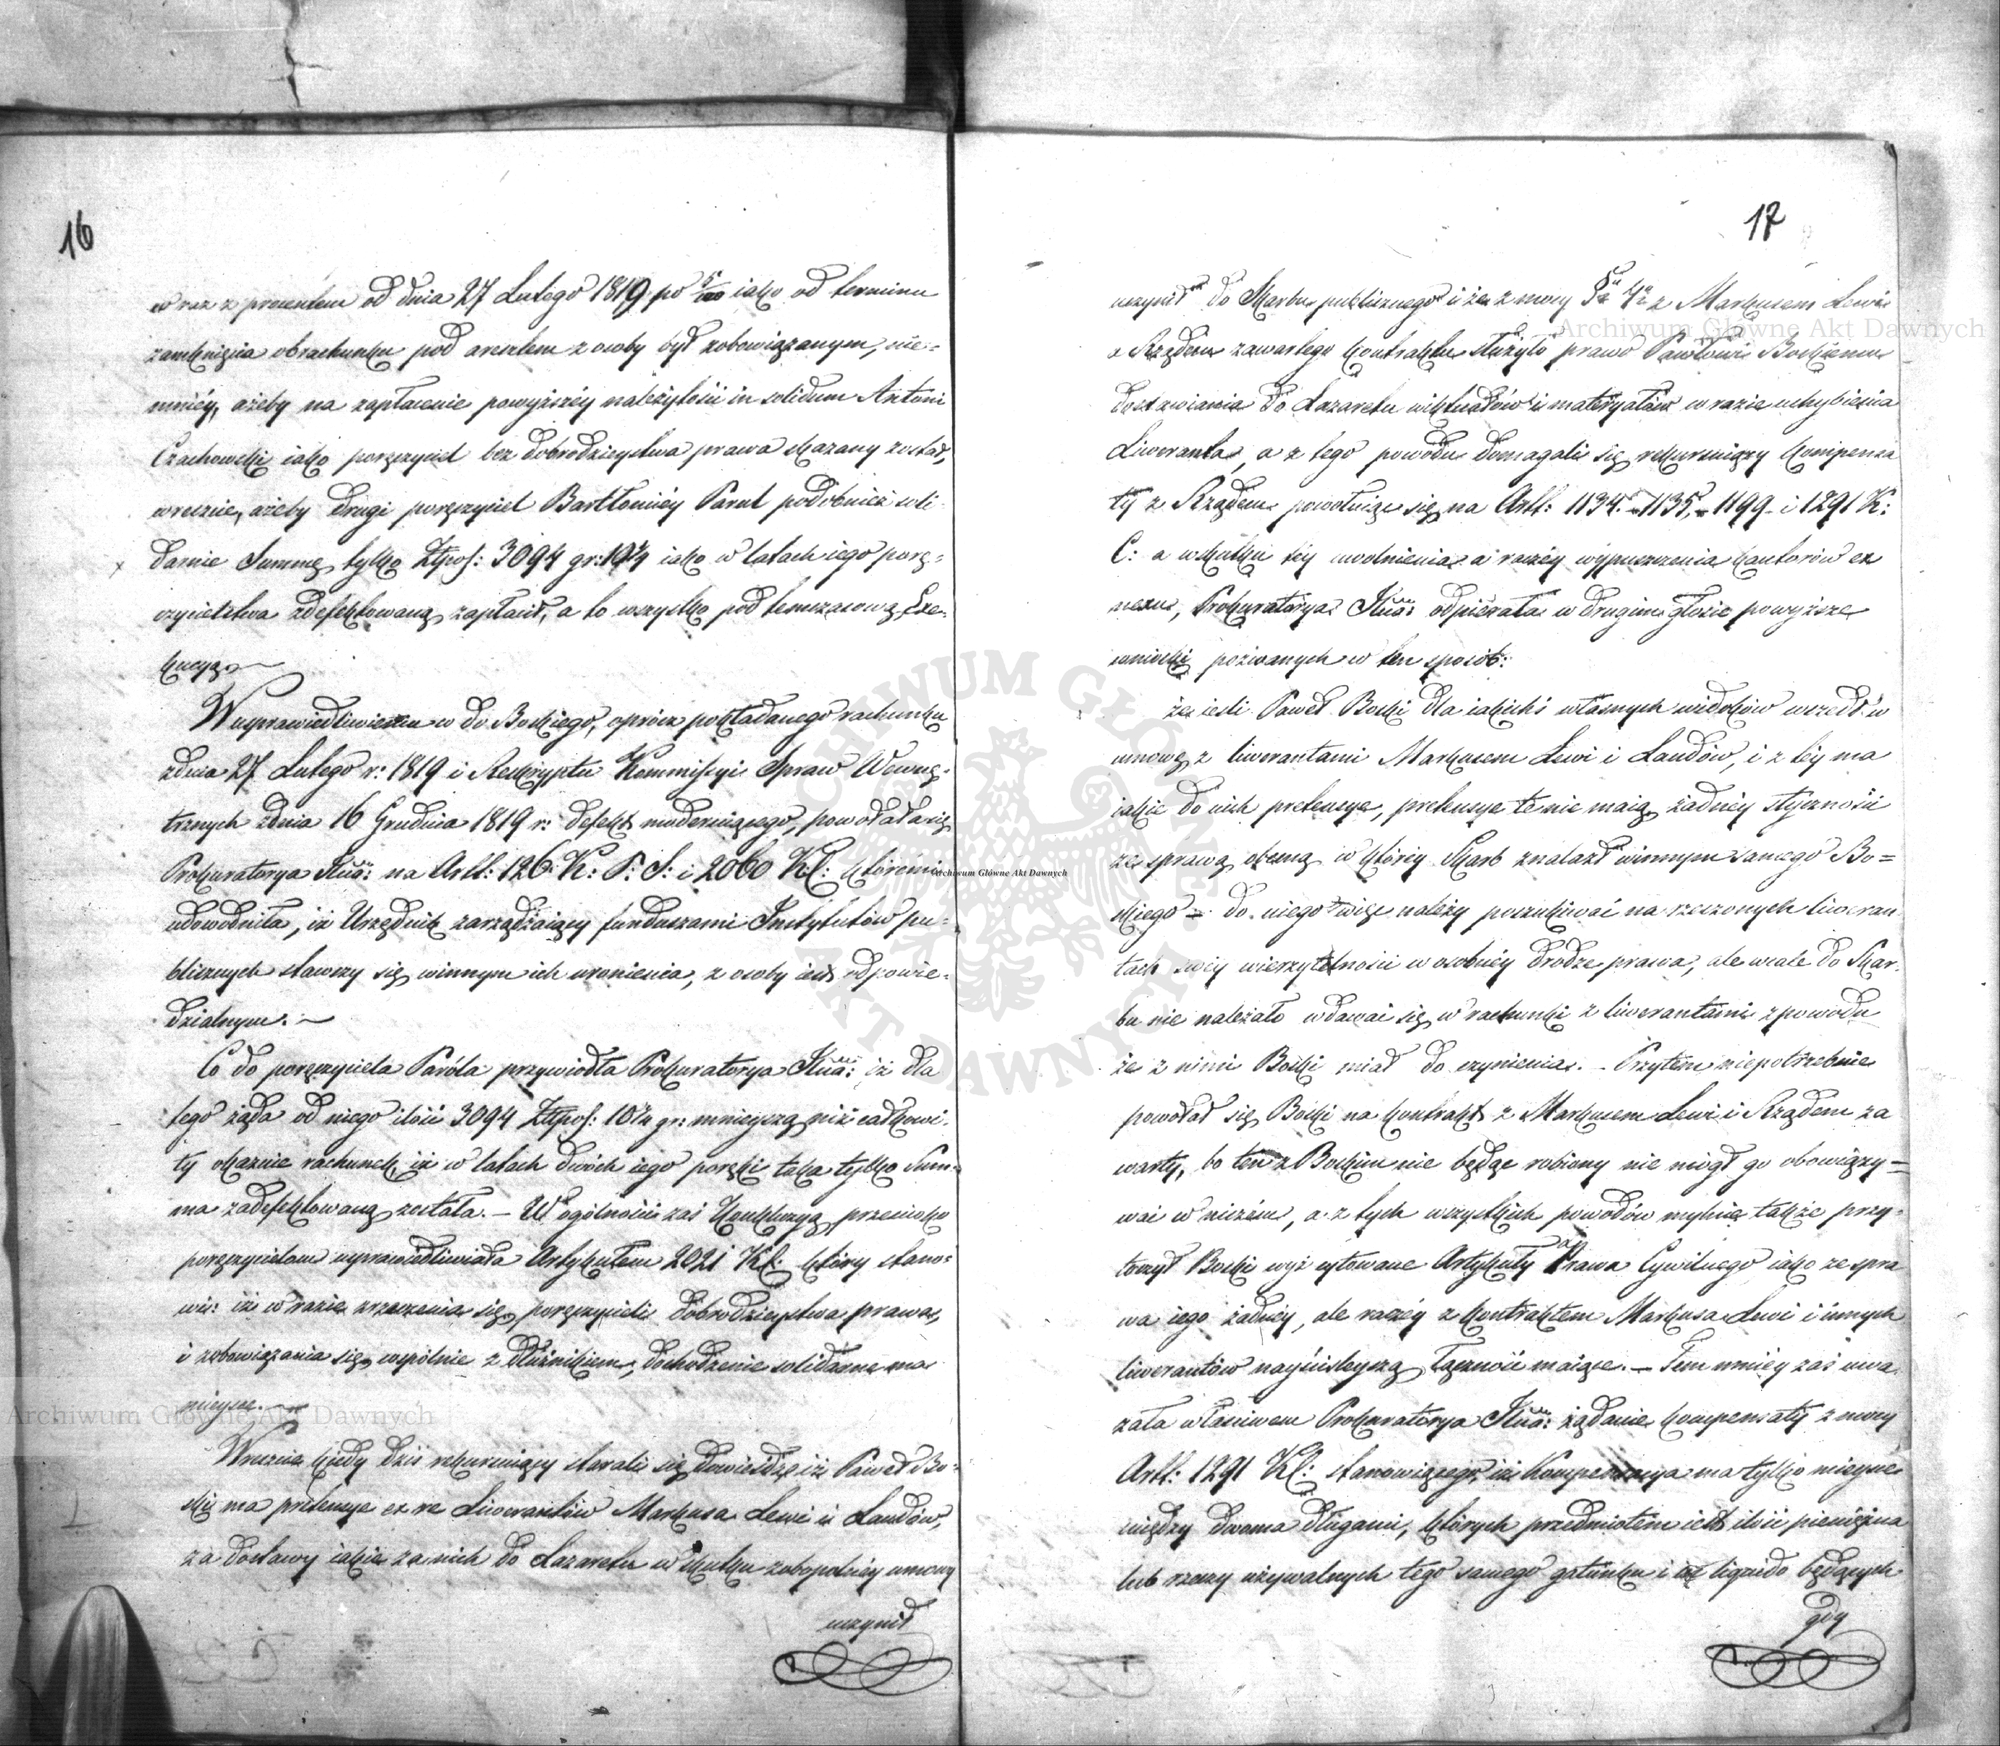 16
w raz z procentem od dnia 27 Lutego 1819 po 5/100 iako od terminu
zamknięcia obrachunku pod aresztem z osoby był zobowiązanym, nie-
mniéy, ażeby na zapłacenie powyższéy należytości in solidum Antoni
Czachowski iako poręczyciel bez dobrodzieystwa prawa skazany został,
wreszcie, ażeby drugi poręczyciel Bartłomiéy Parul podobnież soli-
darnie Summę tylko Złpol: 3094 gr: 10½ iako w latach iego porę-
czycielstwa zdefektowaną zapłacił, a to wszystko pod temczasową Exe-
kucyą.
W usprawiedliwieniu w do Boskiego, oprócz pokładanego rachunku
z dnia 27 Lutego r: 1819 i Reskryptu Kommissyi Spraw Wewnę-
trznych z dnia 16 Grudnia 1819 r: defekt moderuiącego, powołała się
Prokuratorya na Artt: 126. K: P: S: i 2060 K.C: któremi
udowodniła, iż Urzędnik zarządzaiący funduszami Instytutów pu-
blicznych stawszy się winnym ich uronienia, z osoby iest odpowie-
dzialnym. —
Co do poręczyciela Paróla przywiodła Prokuratorya iż dla
tego żąda od niego ilość 3094 Złpol: 10½ gr: mnieyszą niż całkowi-
ty okaznie rachunek, iż w latach dwóch iego poręki taka tylko Sum-
ma zadefektowaną została. — W ogólności zaś Konkluzyą przeciwko
poręczycielom usprawiedliwiała Artykułem 2021 K.C: który stano-
wi: iż w razie zrzeczenia się poręczycieli dobrodzieystwa prawa,
i zobowiązania się wspólnie z dłużnikiem, dochodzenie solidarne ma
mieysce. —
Wreszcie kiedy dziś rekuruiący starali się dowieśdź iż Paweł Bo-
ski ma pretensye ex re Liwerantów Markusa Lewi i Landów,
za dostawy iakie za nich do Lazaretu w skutku zobopolnéy umowy
uczynił
17
uczynił do Skarbu publicznego i że z mocy § 4 z Markusem Lewi
a Rządem zawartego kontraktu służyło prawo Pawłowi Boskiemu
dostawiania do Lazaretu wiktuałów i materyałów w razie uchybienia
Liweranta, a z tego powodu domagali się rekuruiący kompensa
ty z Rządem powołuiąc się na Artt: 1134. 1135, 1199 i 1291 K:
C: a w skutku téy uwolnienia a raczéy wypuszczenia kautorów ex
nexu, Prokuratorya odpierała w drugim głosie powyższe
wnioski pozwanych w ten sposób:
że ieśli Paweł Boski dla iakichś własnych widoków wszedł w
umowę z liwerantami Markusem Lewi i Landów, i z téy ma
iakie do nich pretensye, pretensye te nie maią żadnéy styczności
ze sprawą obecną w któréy Skarb znalazł winnym samego Bo=
skiego — do niego więc należy poszukiwać na rzeczonych liweran
tach swéy wierzytelności w osobnéy drodze prawa, ale wcale do Skar-
bu nie należało wdawać się w rachunki z liwerantami z powodu
że z nimi Boski miał do czynienia. — Przytém niepotrzebnie
powołał się Boski na kontrakt z Markusem Lewi i Rządem za
warty, bo ten z Boskim nie będąc robiony nie mógł go obowiązy=
wać w niczém, a z tych wszystkich powodów mylnie także przy-
toczył Boski wyż cytowane Artykuły Prawa Cywilnego iako ze spra
wą iego żadnéy, ale raczéy z kontraktem Markusa Lewi i innych
liwerantów nayściśleyszą łączność maiące. — Tem mniéy zaś uwa
żała właściwem Prokuratorya żądanie kompensaty z mocy
Artt: 1291 K.C: stanowiącego, iż Kompensacya ma tylko mieysce
między dwoma długami, których przedmiotem iest ilość pieniężna
lub rzeczy używalnych tego samego gatunku i liquido będących
gdy
Archiwum Główne Akt Dawnych
Archiwum Główne Akt Dawnych
Archiwum Główne Akt Dawnych
ARCHIWUM GŁÓWNE AKT DAWNYCH